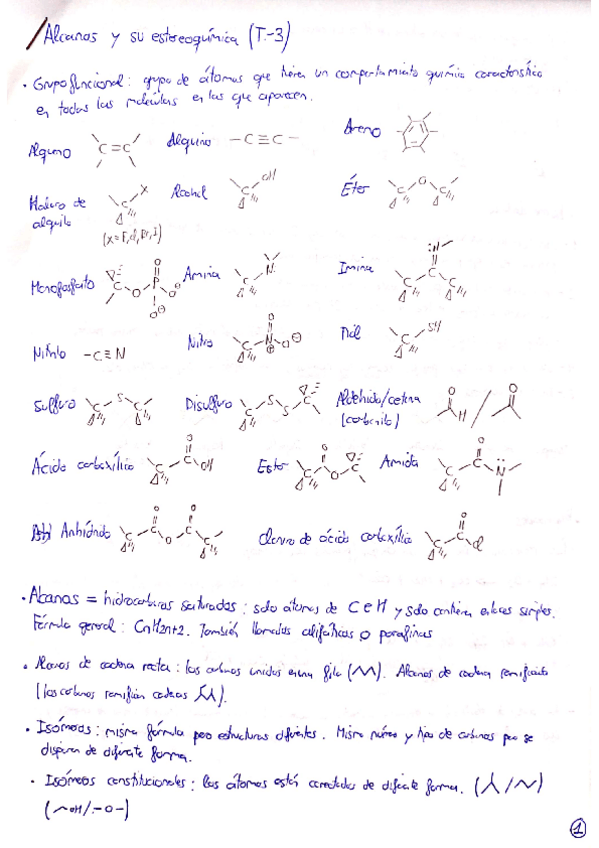 Alcanos y su estereoquímica (T.-3)
· Grupo funcional: grupo de átomos que tienen un comportamiento químico característico
en todas las moléculas en las que aparecen.
Alqueno C=C Alquino -C≡C- Areno
Haluro de alquilo C X (X=F, Cl, Br, I) Alcohol C OH Éter C O C
Monofosfato C O P O O⊖ O⊖ Amina C N Imina C C C :N
Nitrilo -C≡N Nitro C N⊕ O O⊖ Tiol C SH
Sulfuro C S C Disulfuro C S S C Aldehído/cetona (carbonilo) O H / O
Ácido carboxílico C C O OH Ester C C O O C Amida C C O N
Anhídrido C C O O C O C Cloruro de ácido carboxílico C C O Cl
· Alcanos = hidrocarburos saturados: solo átomos de C e H y solo contienen enlaces simples.
Fórmula general: CnH2n+2. También llamados alifáticos o parafinas
· Alcanos de cadena recta: los carbonos unidos en una fila ( ). Alcanos de cadena ramificada
(los carbonos ramifican cadenas ).
· Isómeros: misma fórmula pero estructuras diferentes. Mismo número y tipo de carbonos pero se
disponen de diferente forma.
· Isómeros constitucionales: los átomos están conectados de diferente forma. ( / )
( OH / -O- )
1